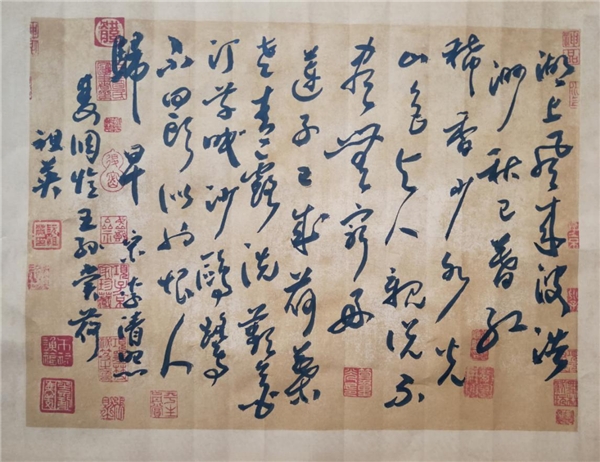 湖上風来波浩
渺秋已暮紅
稀香少水光
山色與人親說不
盡無窮好
蓮子已成荷葉
老青露洗蘋花
汀草眠沙鷗鷺
不回頭似也恨人
歸早 宋李清照
雙調憶王孫賞荷
祖英